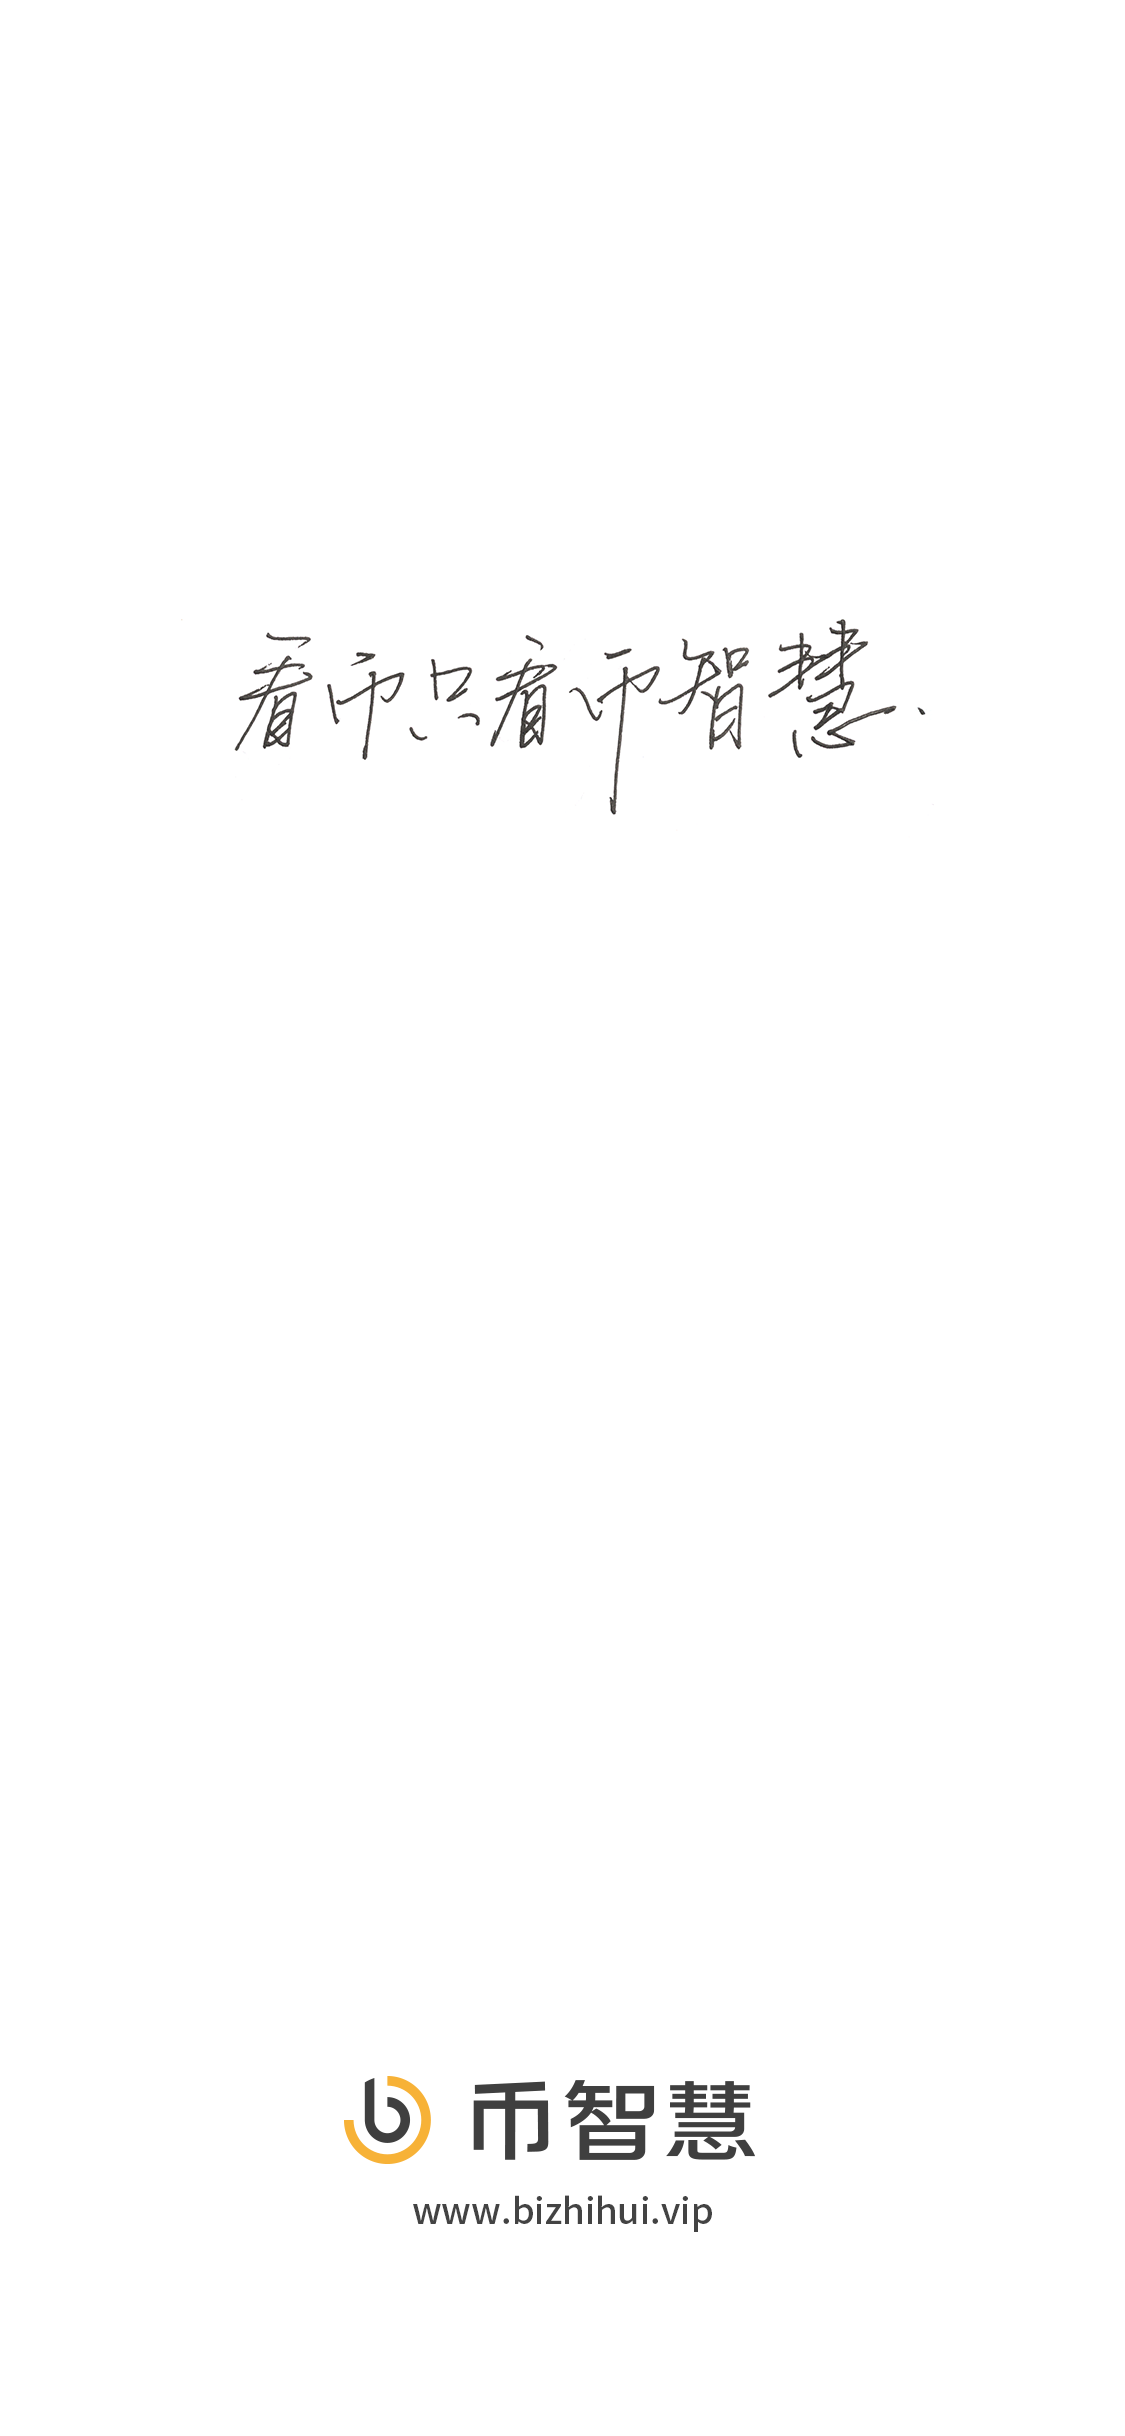 看币只看币智慧.
币智慧
www.bizhihui.vip